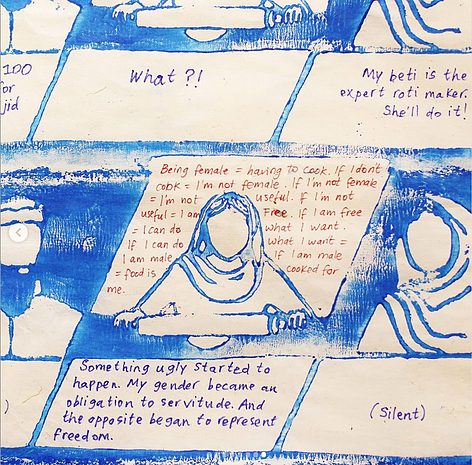 100
for
jid
What ?!
My beti is the
expert roti maker.
She'll do it!
Being female = having to cook. If I dont
cook = I'm not female. If I'm not female
= I'm not useful. F I'm not
useful = I am Free. If I am free
= I can do what I want.
If I can do what I want =
I am male If I am male
= food is cooked for
me.
)
Something ugly started to
happen. My gender became an
obligation to servitude. And
the opposite began to represent
freedom.
(Silent)